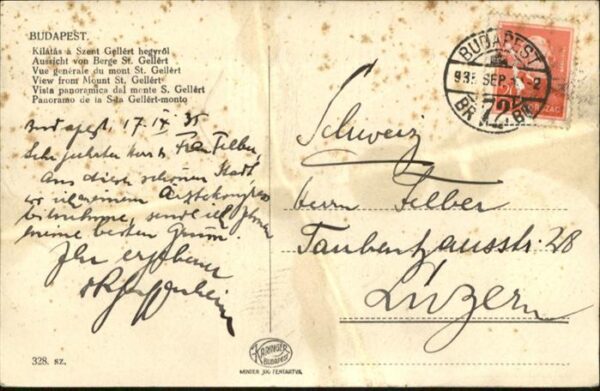 BUDAPEST.
Kilátás a Szent Gellért hegyről
Aussicht von Berge St. Gellért
Vue générale du mont St. Gellért
View from Mount St. Gellért
Vista panoramica dal monte S. Gellért
Panoramo de la S-ta Gellért-monto
Budapest, 17 IX 35
Sehr geehrter Herr u. Frau Felber
Aus dieser schönen Stadt
wo ich einem Ärztekongress
beiwohne, sende ich Ihnen
meine besten Grüsse.
Ihr ergebener
328. sz.
KARINGER
BUDAPEST
MINDEN JOG FENTARTVA
BUDAPEST
935 SEP
72
Schweiz
Herrn Felber
Taubenhausstr. 28
Luzern